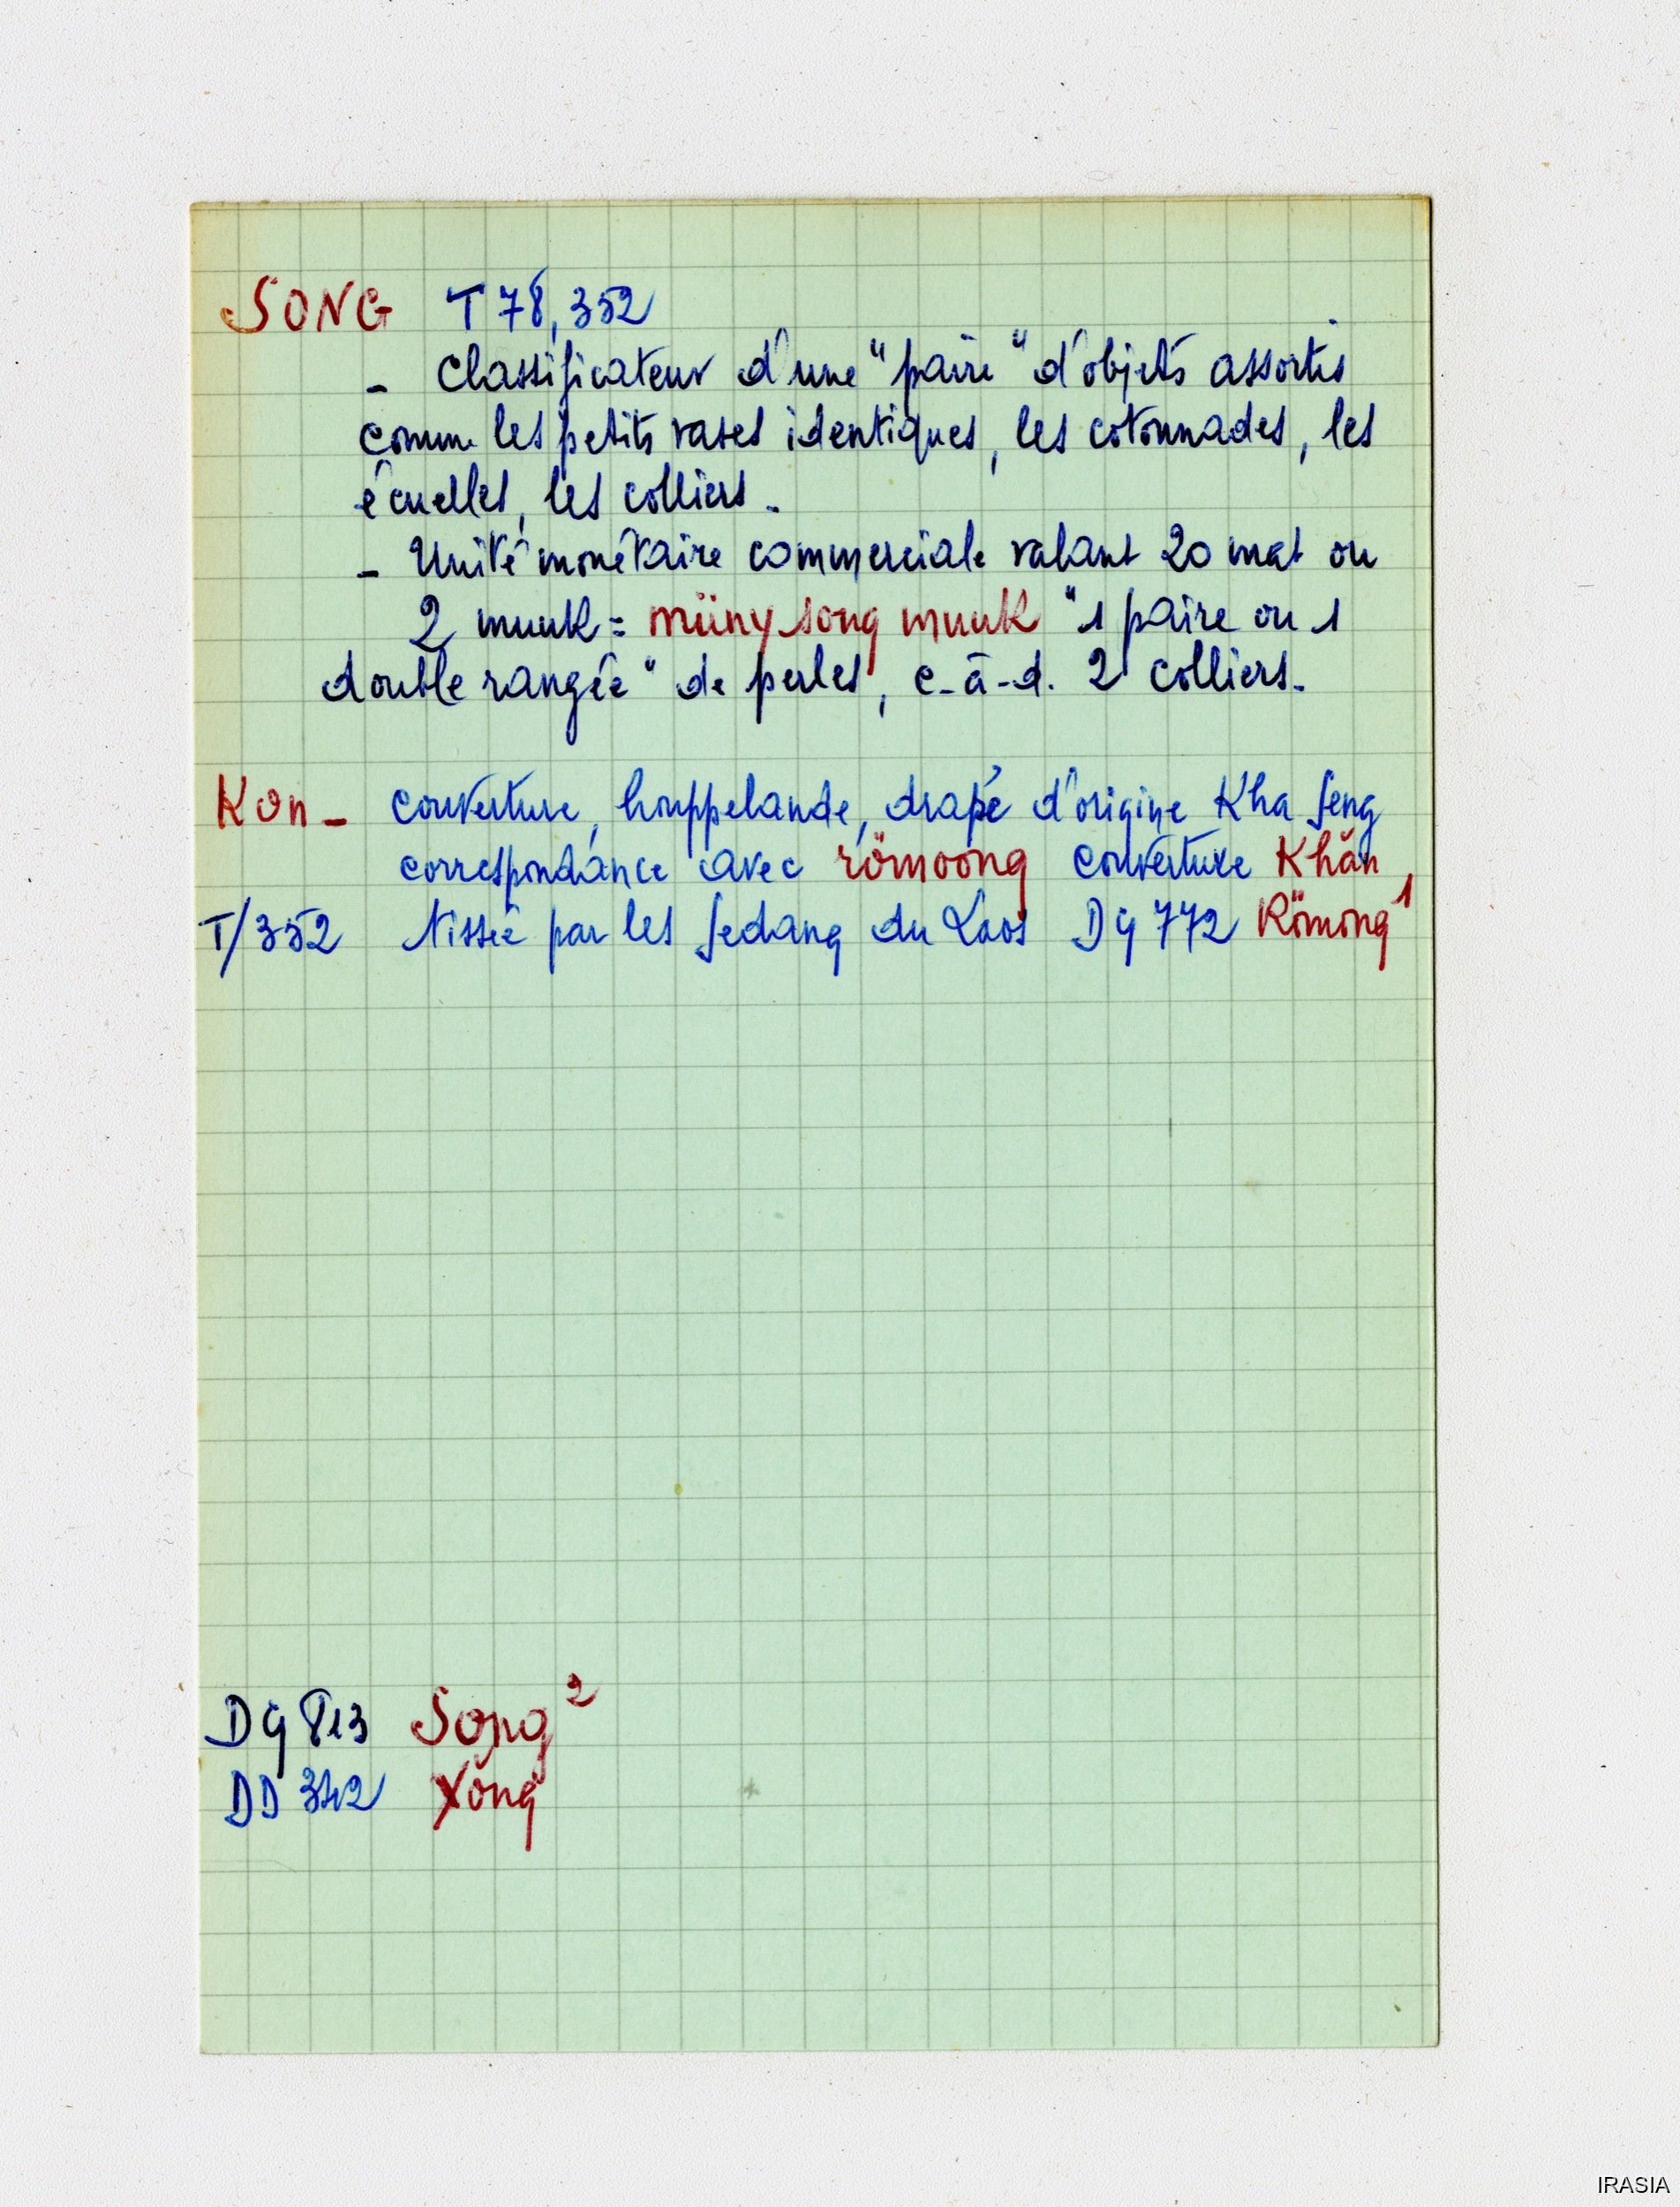 SONG T 78, 352
- Classificateur d'une "paire" d'objets assortis
comme les petits vases identiques, les cotonnades, les
écuelles, les colliers.
- Unité monétaire commerciale valant 20 mat ou
2 muuk = müiny song muuk "1 paire ou 1
double rangée" de perles, c-à-d. 2 colliers.
Kon - couverture, houppelande, drapé d'origine Kha Seng
correspondance avec römoong couverture Khăn
T/352 tissée par les Sedang du Laos DG 772 Römong¹
DG 813 Song²
DD 342 Xŏng
IRASIA